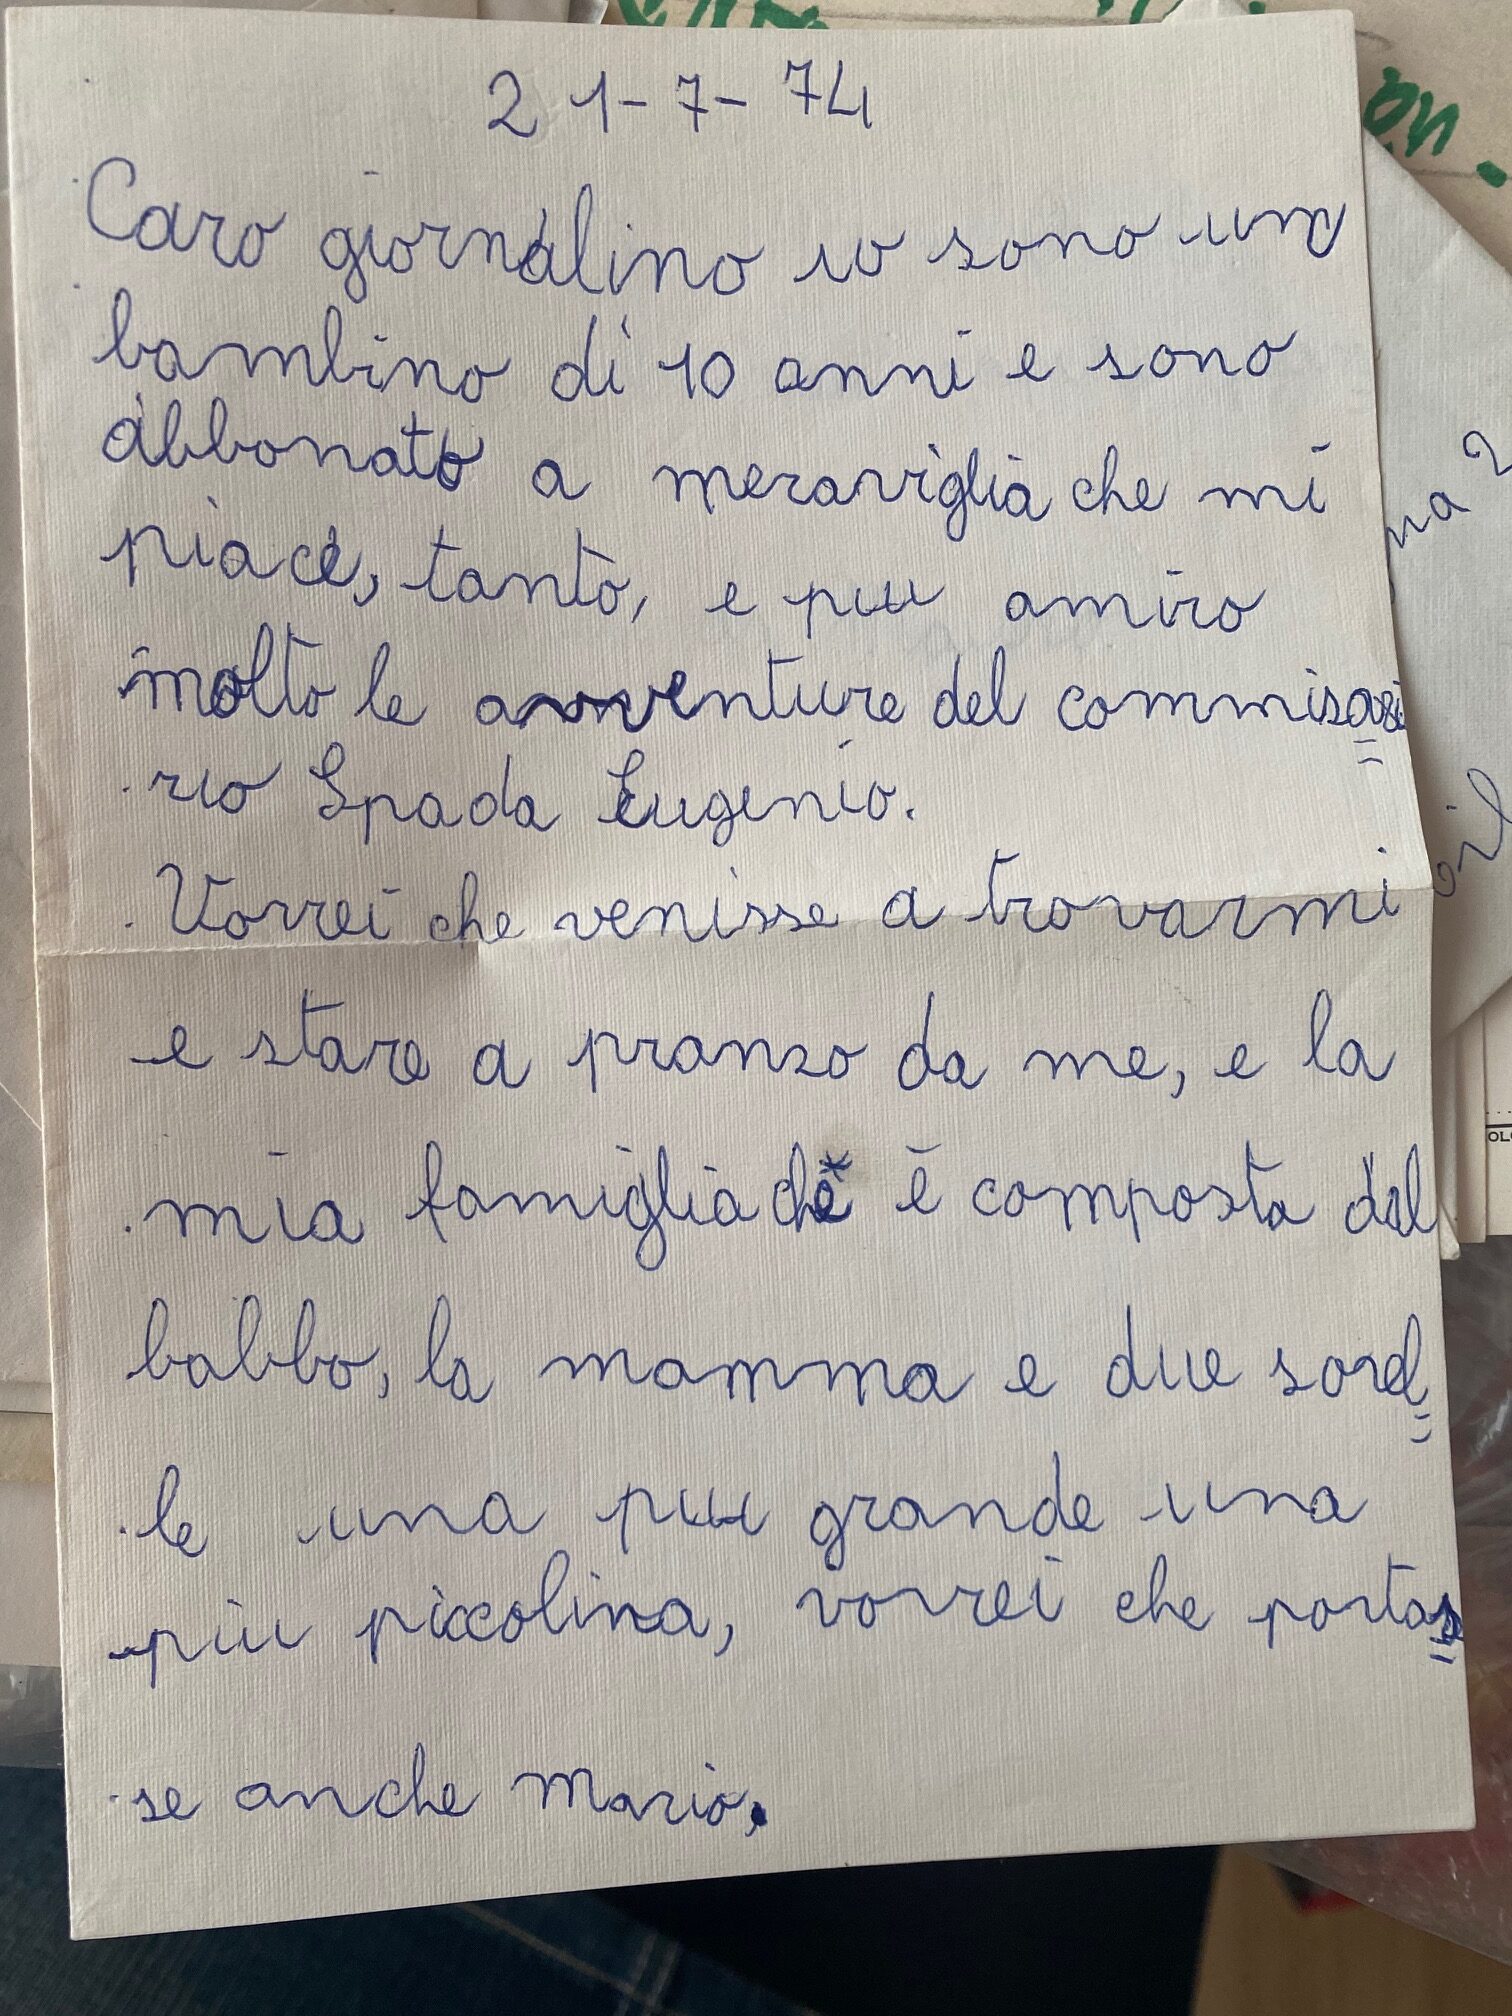 21-7-74
Caro giornalino io sono un
bambino di 10 anni e sono
abbonato a meraviglia che mi
piace, tanto, e piu amiro
molto le avventure del commisa=
rio Spada Eugenio.
Vorrei che venisse a trovarmi
e stare a pranzo da me, e la
mia famiglia che è composta dal
babbo, la mamma e due sorel=
le una piu grande una
piu piccolina, vorrei che portas=
se anche Mario.